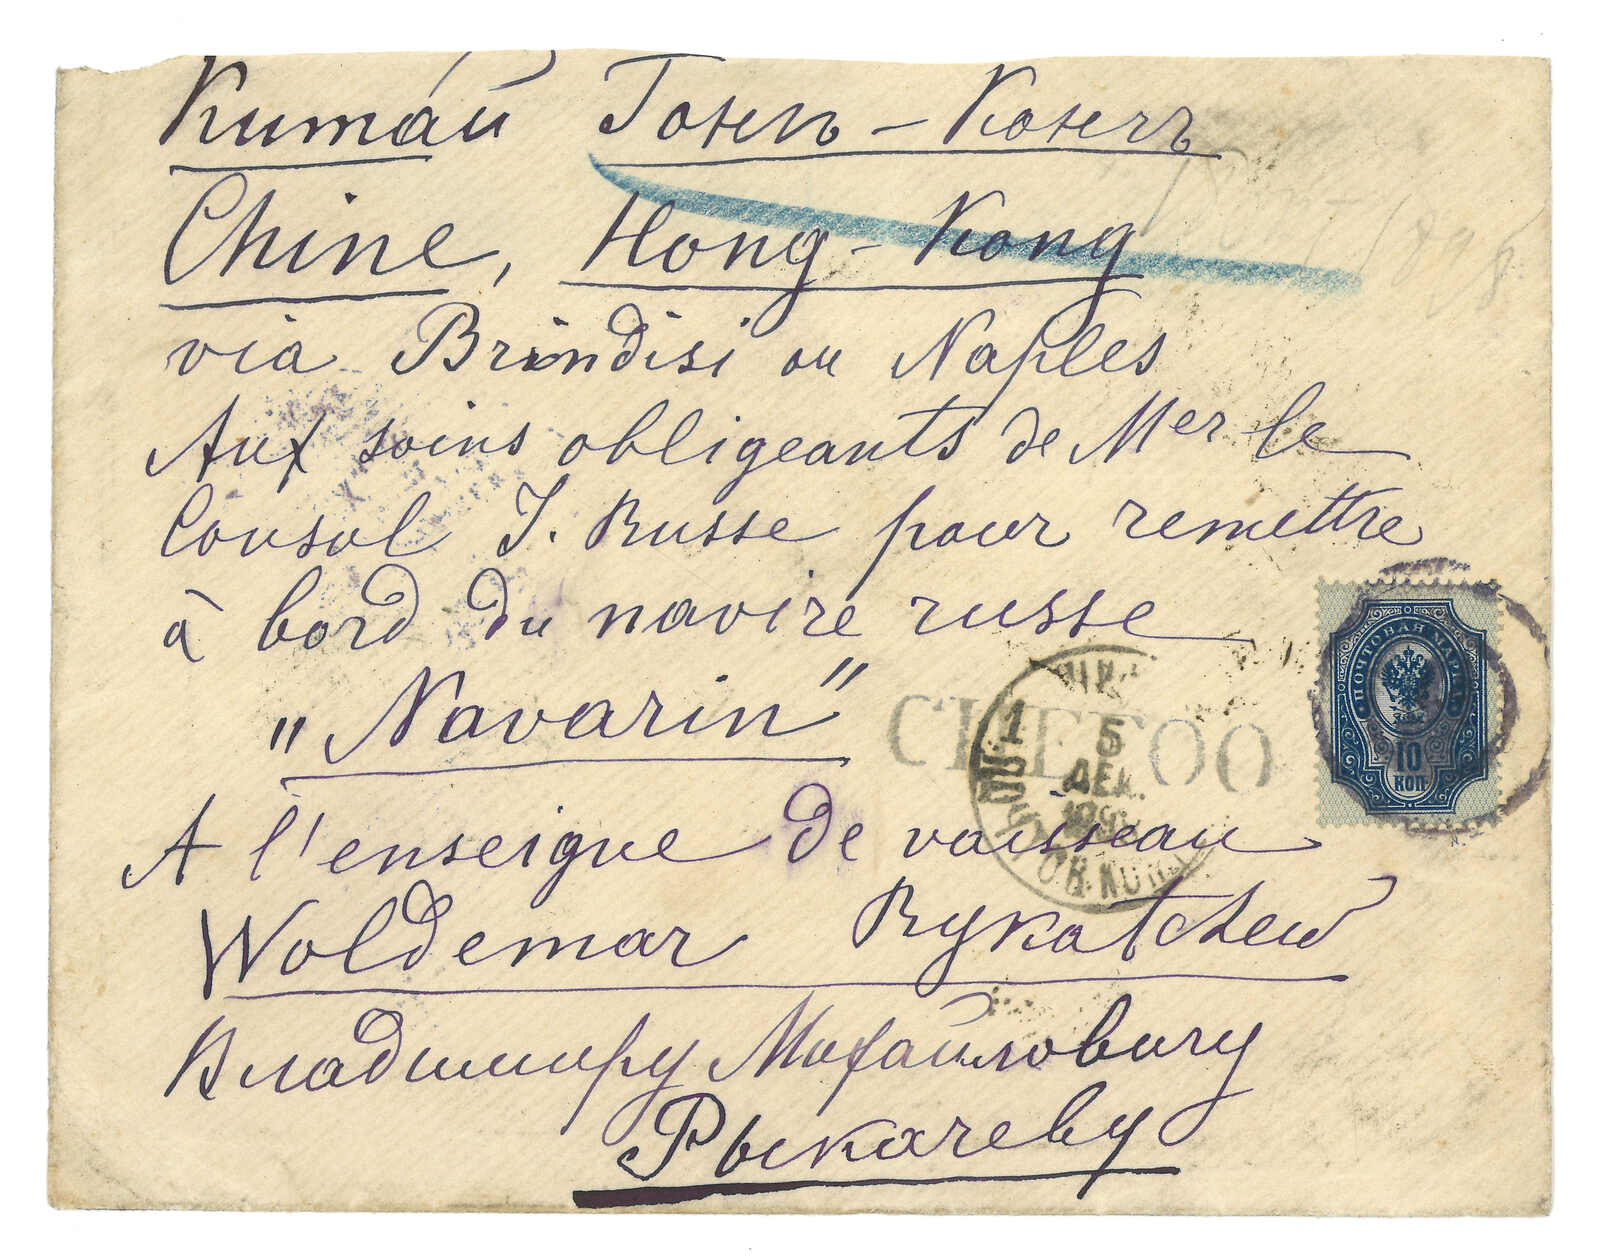 Китай Гонгъ-Конгъ
Chine, Hong-Kong
via Brindisi ou Naples
Aux soins obligeants de Mer le
Consul I. Russe pour remettre
à bord du navire russe
"Navarin"
A l'enseigne de vaisseau
Woldemar Rykatchew
Владимиру Михайловичу
Рыкачеву
CHEFOO
1
5
ДЕК.
ПОЧТОВАЯ МАРКА
10
КОП